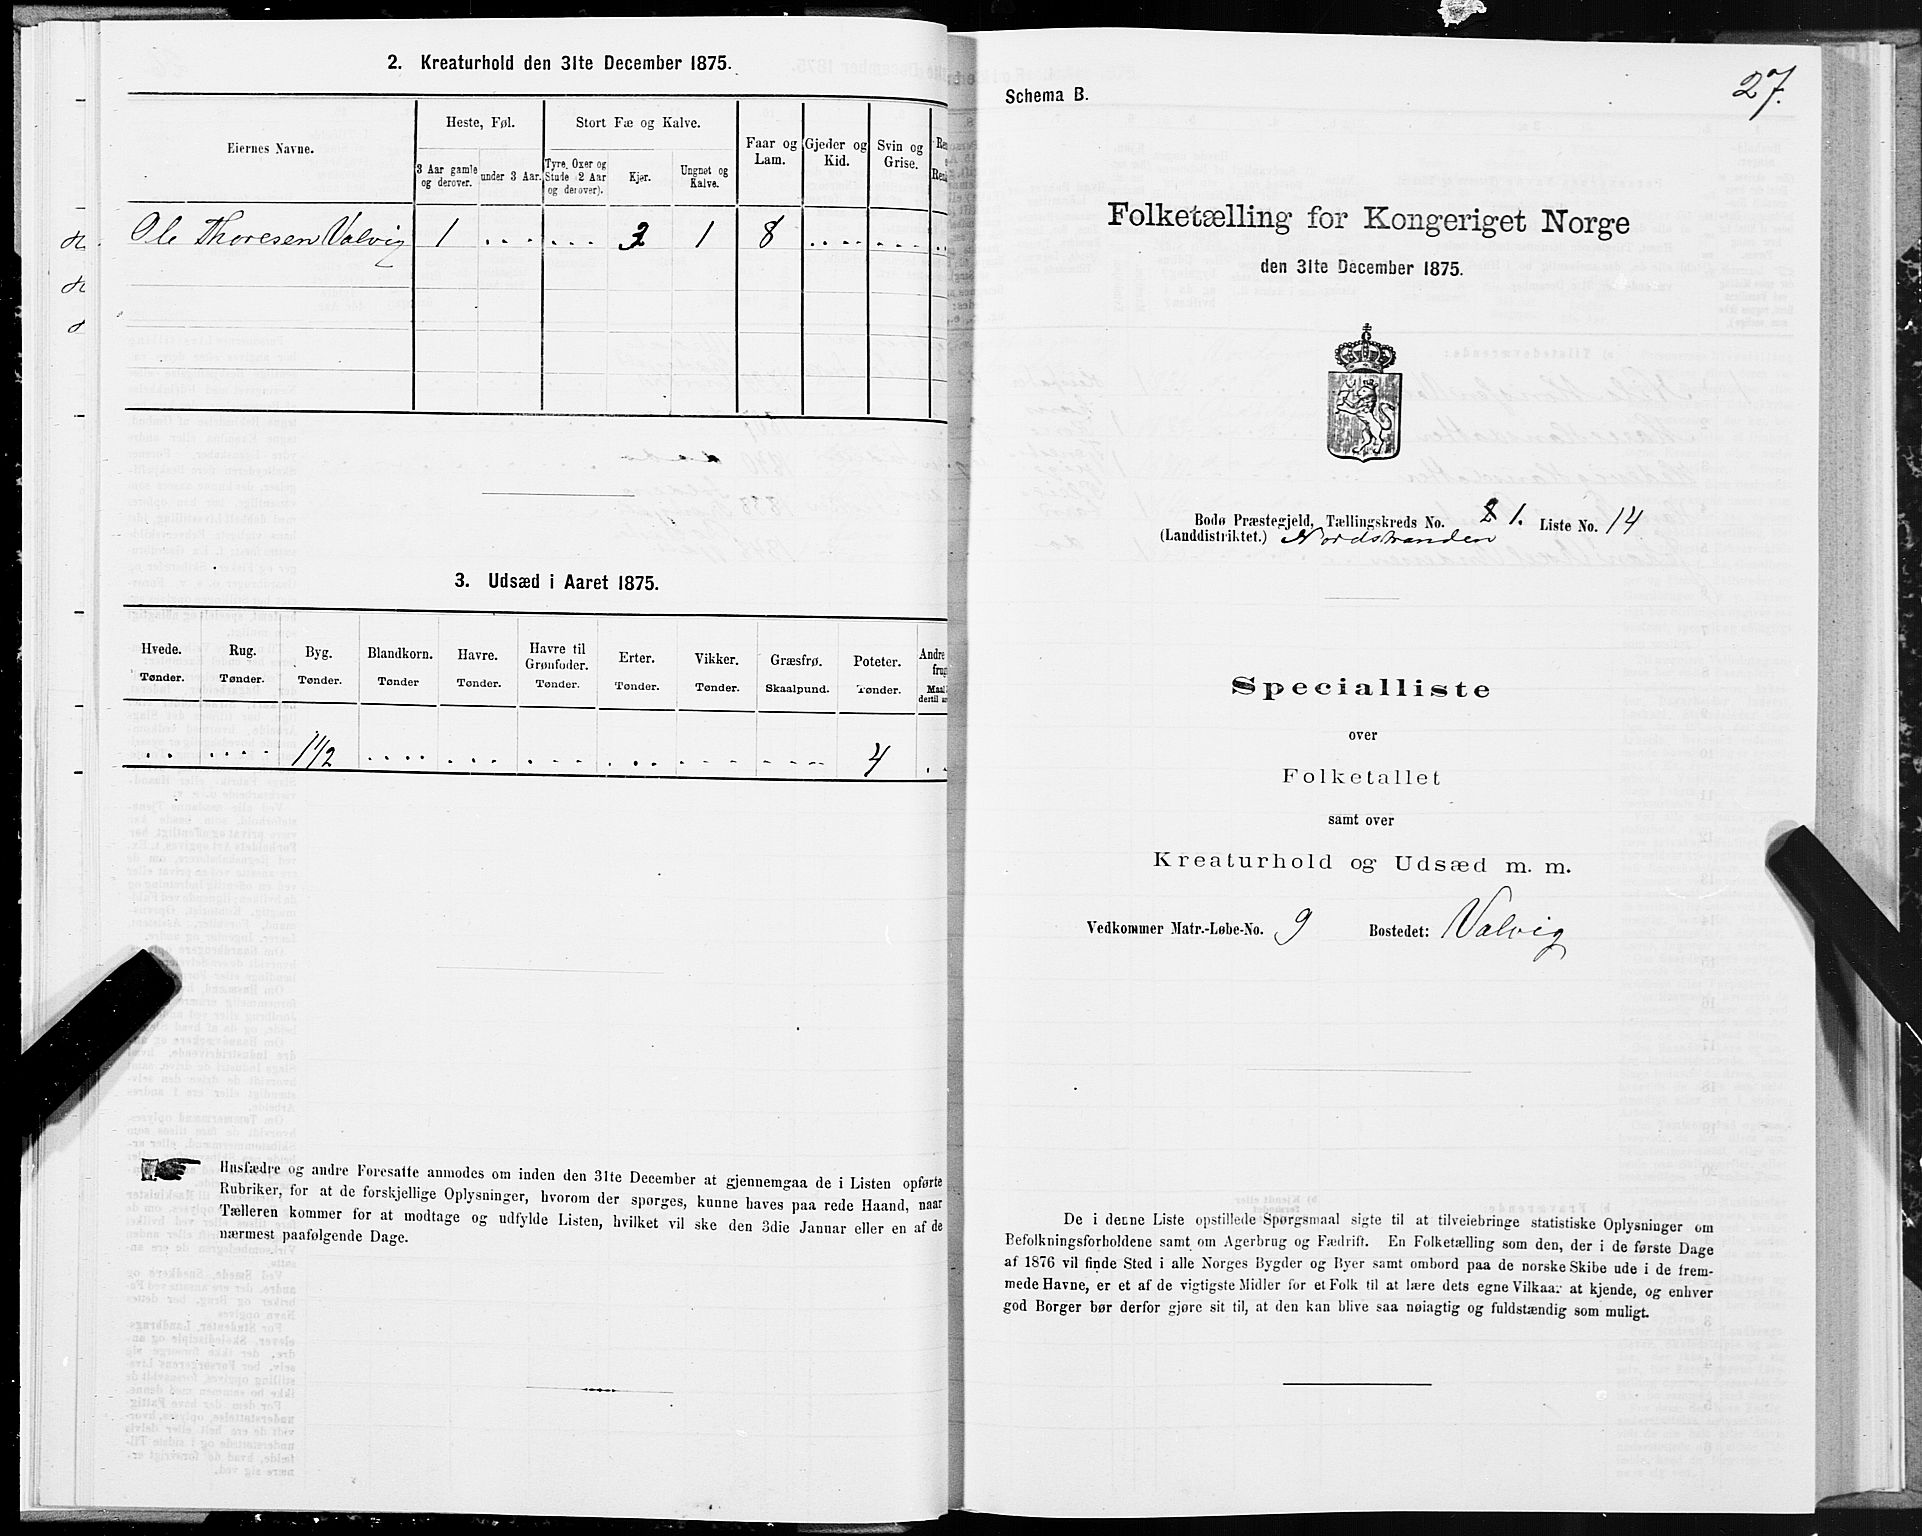 2. Kreaturhold den 31te December 1875.
Eiernes Navne.
Heste, Føl.
Stort Fæ og Kalve.
Faar og Lam.
Gjeder og Kid.
Svin og Grise.
3 Aar gamle og derover.
under 3 Aar.
Tyre, Oxer og Stude (2 Aar og derover).
Kjør.
Ungnøt og Kalve.
Ole Thoresen Valvig 1 . . . . . . 1 8 . . . . . . . . . .
3. Udsæd i Aaret 1875.
Hvede. Rug. Byg. Blandkorn. Havre. Havre til Grønfoder. Erter. Vikker. Græsfrø. Poteter. Andre
Tønder. Tønder. Tønder. Tønder Tønder. Tønder. Tønder. Tønder. Skaalpund. Tønder.
. . . . . . 1 1/2 . . . . . . . . . . . . . . . . . . . . . . 4 . .
Husfædre og andre Foresatte anmodes om inden den 31te December at gjennemgaa de i Listen opførte
Rubriker, for at de forskjellige Oplysninger, hvorom der spørges, kunne haves paa rede Haand, naar
Tælleren kommer for at modtage og udfylde Listen, hvilket vil ske den 3die Januar eller en af de
nærmest paafølgende Dage.
27.
Schema B.
Folketælling for Kongeriget Norge
den 31te December 1875.
Bodø Præstegjeld, Tællingskreds No. 1. Liste No. 14
(Landdistriktet.) Nordstranden
Specialliste
over
Folketallet
samt over
Kreaturhold og Udsæd m. m.
Vedkommer Matr.-Løbe-No. 9 Bostedet: Valvig
De i denne Liste opstillede Spørgsmaal sigte til at tilveiebringe statistiske Oplysninger om
Befolkningsforholdene samt om Agerbrug og Fædrift. En Folketælling som den, der i de første Dage
af 1876 vil finde Sted i alle Norges Bygder og Byer samt ombord paa de norske Skibe ude i de frem-
mede Havne, er et af de vigtigste Midler for et Folk til at lære dets egne Vilkaar at kjende, og enhver
god Borger bør derfor gjøre sit til, at den kan blive saa nøiagtig og fuldstændig som muligt.